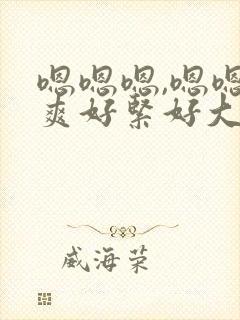 嗯嗯嗯,嗯嗯
爽好紧好大
威海荣